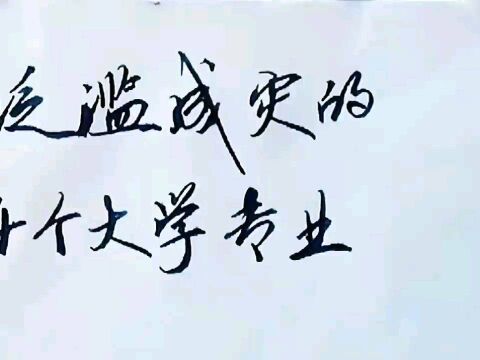 泛滥成灾的
个大学专业